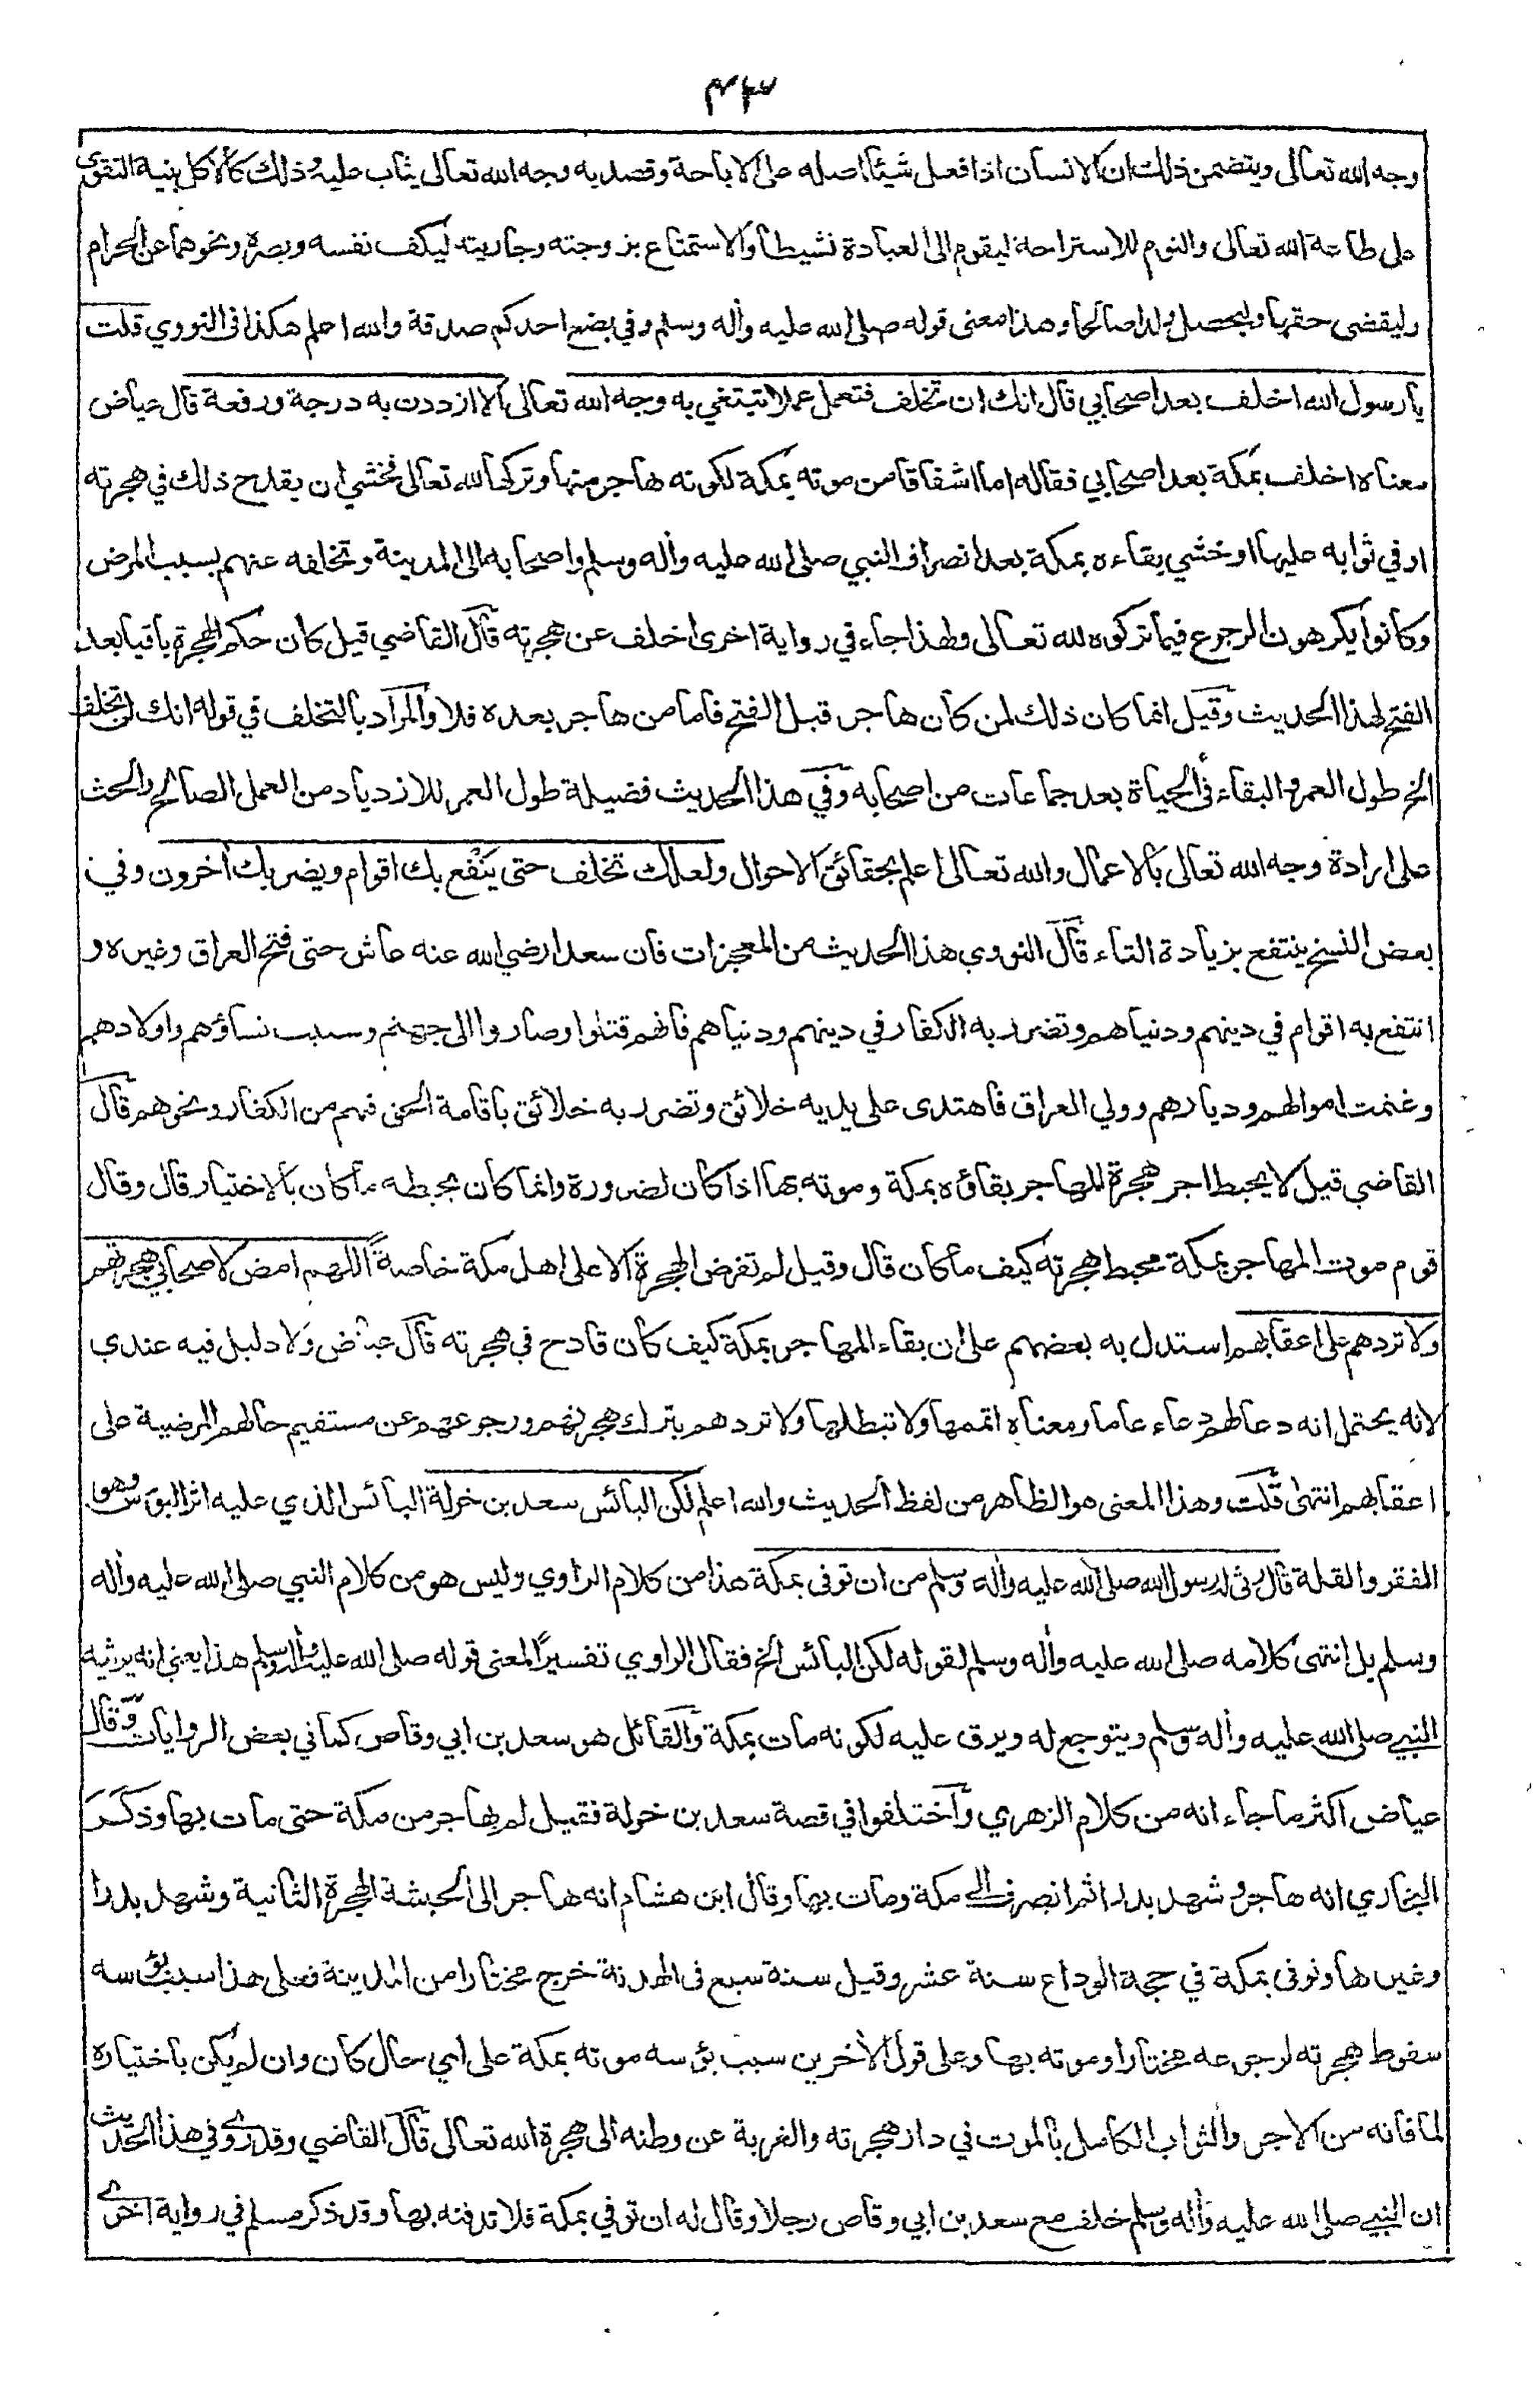 وجه الله تعالى ويتضمن ذلك ان الانسان اذا فعل شيئا اصله على الاباحة وقصد به وجه الله تعالى يثاب عليه وذلك كالاكل بنية التقوى
على طاعة الله تعالى والنوم للاستراحة ليقوم الى العبادة نشيطا والاستمتاع بزوجته وجاريته ليكف نفسه وبصره ونحوهما عن الحرام
وليقضى حقها وليحصل ولدا صالحا وهذا معنى قوله صلى الله عليه وأله وسلم وفي بضع احدكم صدقة والله اعلم هكذا فى النووي قلت
يا رسول الله اخلف بعد اصحابي قال انك ان تخلف فتعمل عملا تبتغي به وجه الله تعالى الا ازددت به درجة ورفعة قال عياض
معناه اخلف بمكة بعد اصحابي فقاله اما اشفاقا من موته بمكة لكونه هاجر منها وتركها لله تعالى فخشي ان يقدح ذلك في هجرته
او في ثوابه عليها او خشي بقاءه بمكة بعد انصراف النبي صلى الله عليه وأله وسلم واصحابه الى المدينة وتخلفه عنهم بسبب المرض
وكانوا يكرهون الرجوع فيما تركوه لله تعالى ولهذا جاء في رواية اخرى اخلف عن هجرته قال القاضي قيل كان حكم الهجرة باقيا بعد
الفتح لهذا الحديث وقيل انما كان ذلك لمن كان هاجر قبل الفتح فاما من هاجر بعده فلا والمراد بالتخلف في قوله انك لن تخلف
الخ طول العمر والبقاء فى الحياة بعد جماعات من اصحابه وفي هذا الحديث فضيلة طول العمر للازدياد من العمل الصالح والحث
على ارادة وجه الله تعالى بالاعمال والله تعالى اعلم بحقائق الاحوال ولعلك تخلف حتى ينفع بك اقوام ويضر بك أخرون وفي
بعض النسخ ينتفع بزيادة التاء قال النووي هذا الحديث من المعجزات فان سعدا رضي الله عنه عاش حتى فتح العراق وغيره و
انتفع به اقوام في دينهم ودنياهم وتضرر به الكفار في دينهم ودنياهم فانهم قتلوا وصاروا الى جهنم وسبيت نساؤهم واولادهم
وغنمت اموالهم وديارهم وولي العراق فاهتدى على يديه خلائق وتضرر به خلائق باقامة الحق فيهم من الكفار ونحوهم قال
القاضي قيل لا يحبط اجر هجرة المهاجر بقاؤه بمكة وموته بها اذا كان لضرورة وانما كان يحبطه ما كان بالاختيار قال وقال
قوم موت المهاجر بمكة محبط هجرته كيف ما كان قال وقيل لم تفرض الهجرة الا على اهل مكة خاصة اللهم امض لاصحابي هجرتهم
ولا تردهم على اعقابهم استدل به بعضهم على ان بقاء المهاجر بمكة كيف كان قادح في هجرته قال عياض ولا دليل فيه عندي
لانه يحتمل انه دعا لهم دعاء عاما ومعناه اتممها ولا تبطلها ولا تردهم بترك هجرتهم ورجوعهم عن مستقيم حالهم المرضية على
اعقابهم انتهى قلت وهذا المعنى هو الظاهر من لفظ الحديث والله اعلم لكن البائس سعد بن خولة البائس الذي عليه اثر البؤس وهو
الفقر والقلة قال رثى له رسول الله صلى الله عليه وأله وسلم من ان توفى بمكة هذا من كلام الراوي وليس هو من كلام النبي صلى الله عليه وأله
وسلم بل انتهى كلامه صلى الله عليه وأله وسلم لقوله لكن البائس الخ فقال الراوي تفسيرا لمعنى قوله صلى الله عليه وأله وسلم هذا يعني انه يرثيه
النبي صلى الله عليه وأله وسلم ويتوجع له ويرق عليه لكونه مات بمكة والقائل هو سعد بن ابي وقاص كما في بعض الروايات وقال
عياض اكثر ما جاء انه من كلام الزهري واختلفوا في قصة سعد بن خولة فقيل لم يهاجر من مكة حتى مات بها وذكر
البخاري انه هاجر وشهد بدرا ثم انصرف الى مكة ومات بها وقال ابن هشام انه هاجر الى الحبشة الهجرة الثانية وشهد بدرا
وغيرها وتوفى بمكة في حجة الوداع سنة عشر وقيل سنة سبع فى الهدنة خرج مختارا من المدينة فعلى هذا سبب بؤسه
سقوط هجرته لرجوعه مختارا وموته بها وعلى قول الأخرين سبب بؤسه موته بمكة على اي حال كان وان لم يكن باختياره
لما فاته من الاجر والثواب الكامل بالموت في دار هجرته والغربة عن وطنه الى هجرة الله تعالى قال القاضي وقد روي في هذا الحديث
ان النبي صلى الله عليه وأله وسلم خلف مع سعد بن ابي وقاص رجلا وقال له ان توفي بمكة فلا تدفنه بها وقد ذكر مسلم في رواية اخرى